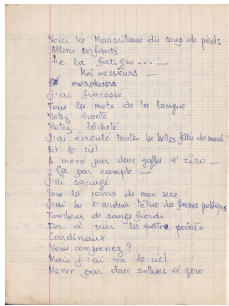 Voici la Marseillaise du coup de pied:
Allons enfants
De la fatigue... —
Mes messieurs —
messieurs
J'ai fracassé
Tous les mots de la langue
Notez honte
Notez lâcheté
J'ai écroulé toutes les belles filles de
Et le ciel
A mené par deux gaffes à zéro —
— Ça par exemple —
J'ai saccagé
Tous les cœurs de mon sexe
J'ai eu l'ardeur têtue des
Tombeur de sangs froids
For à suer les quatre points
Cardinaux
Vous comprenez?
Mais j'ai vu le ciel
Mener par deux à zéro